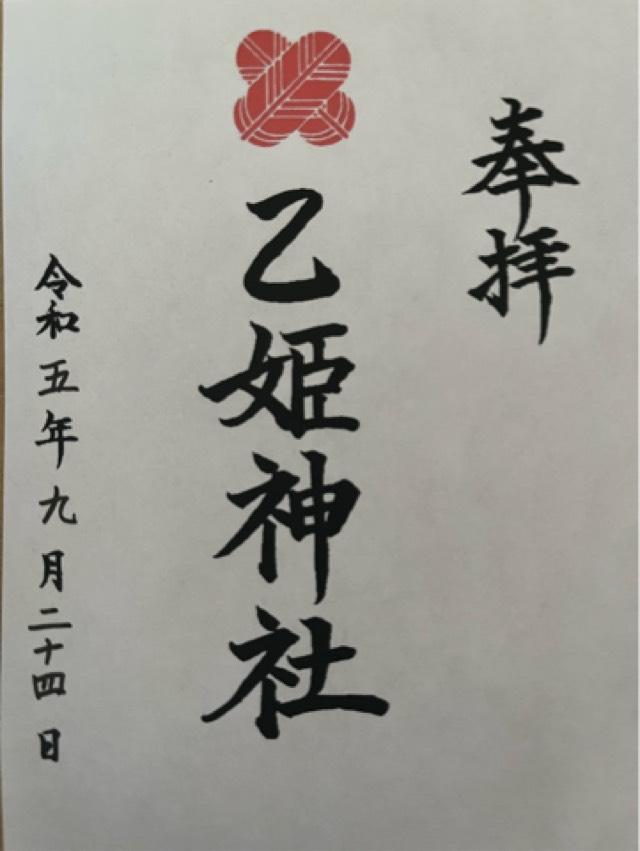 奉拝
乙姫神社
令和五年九月二十四日